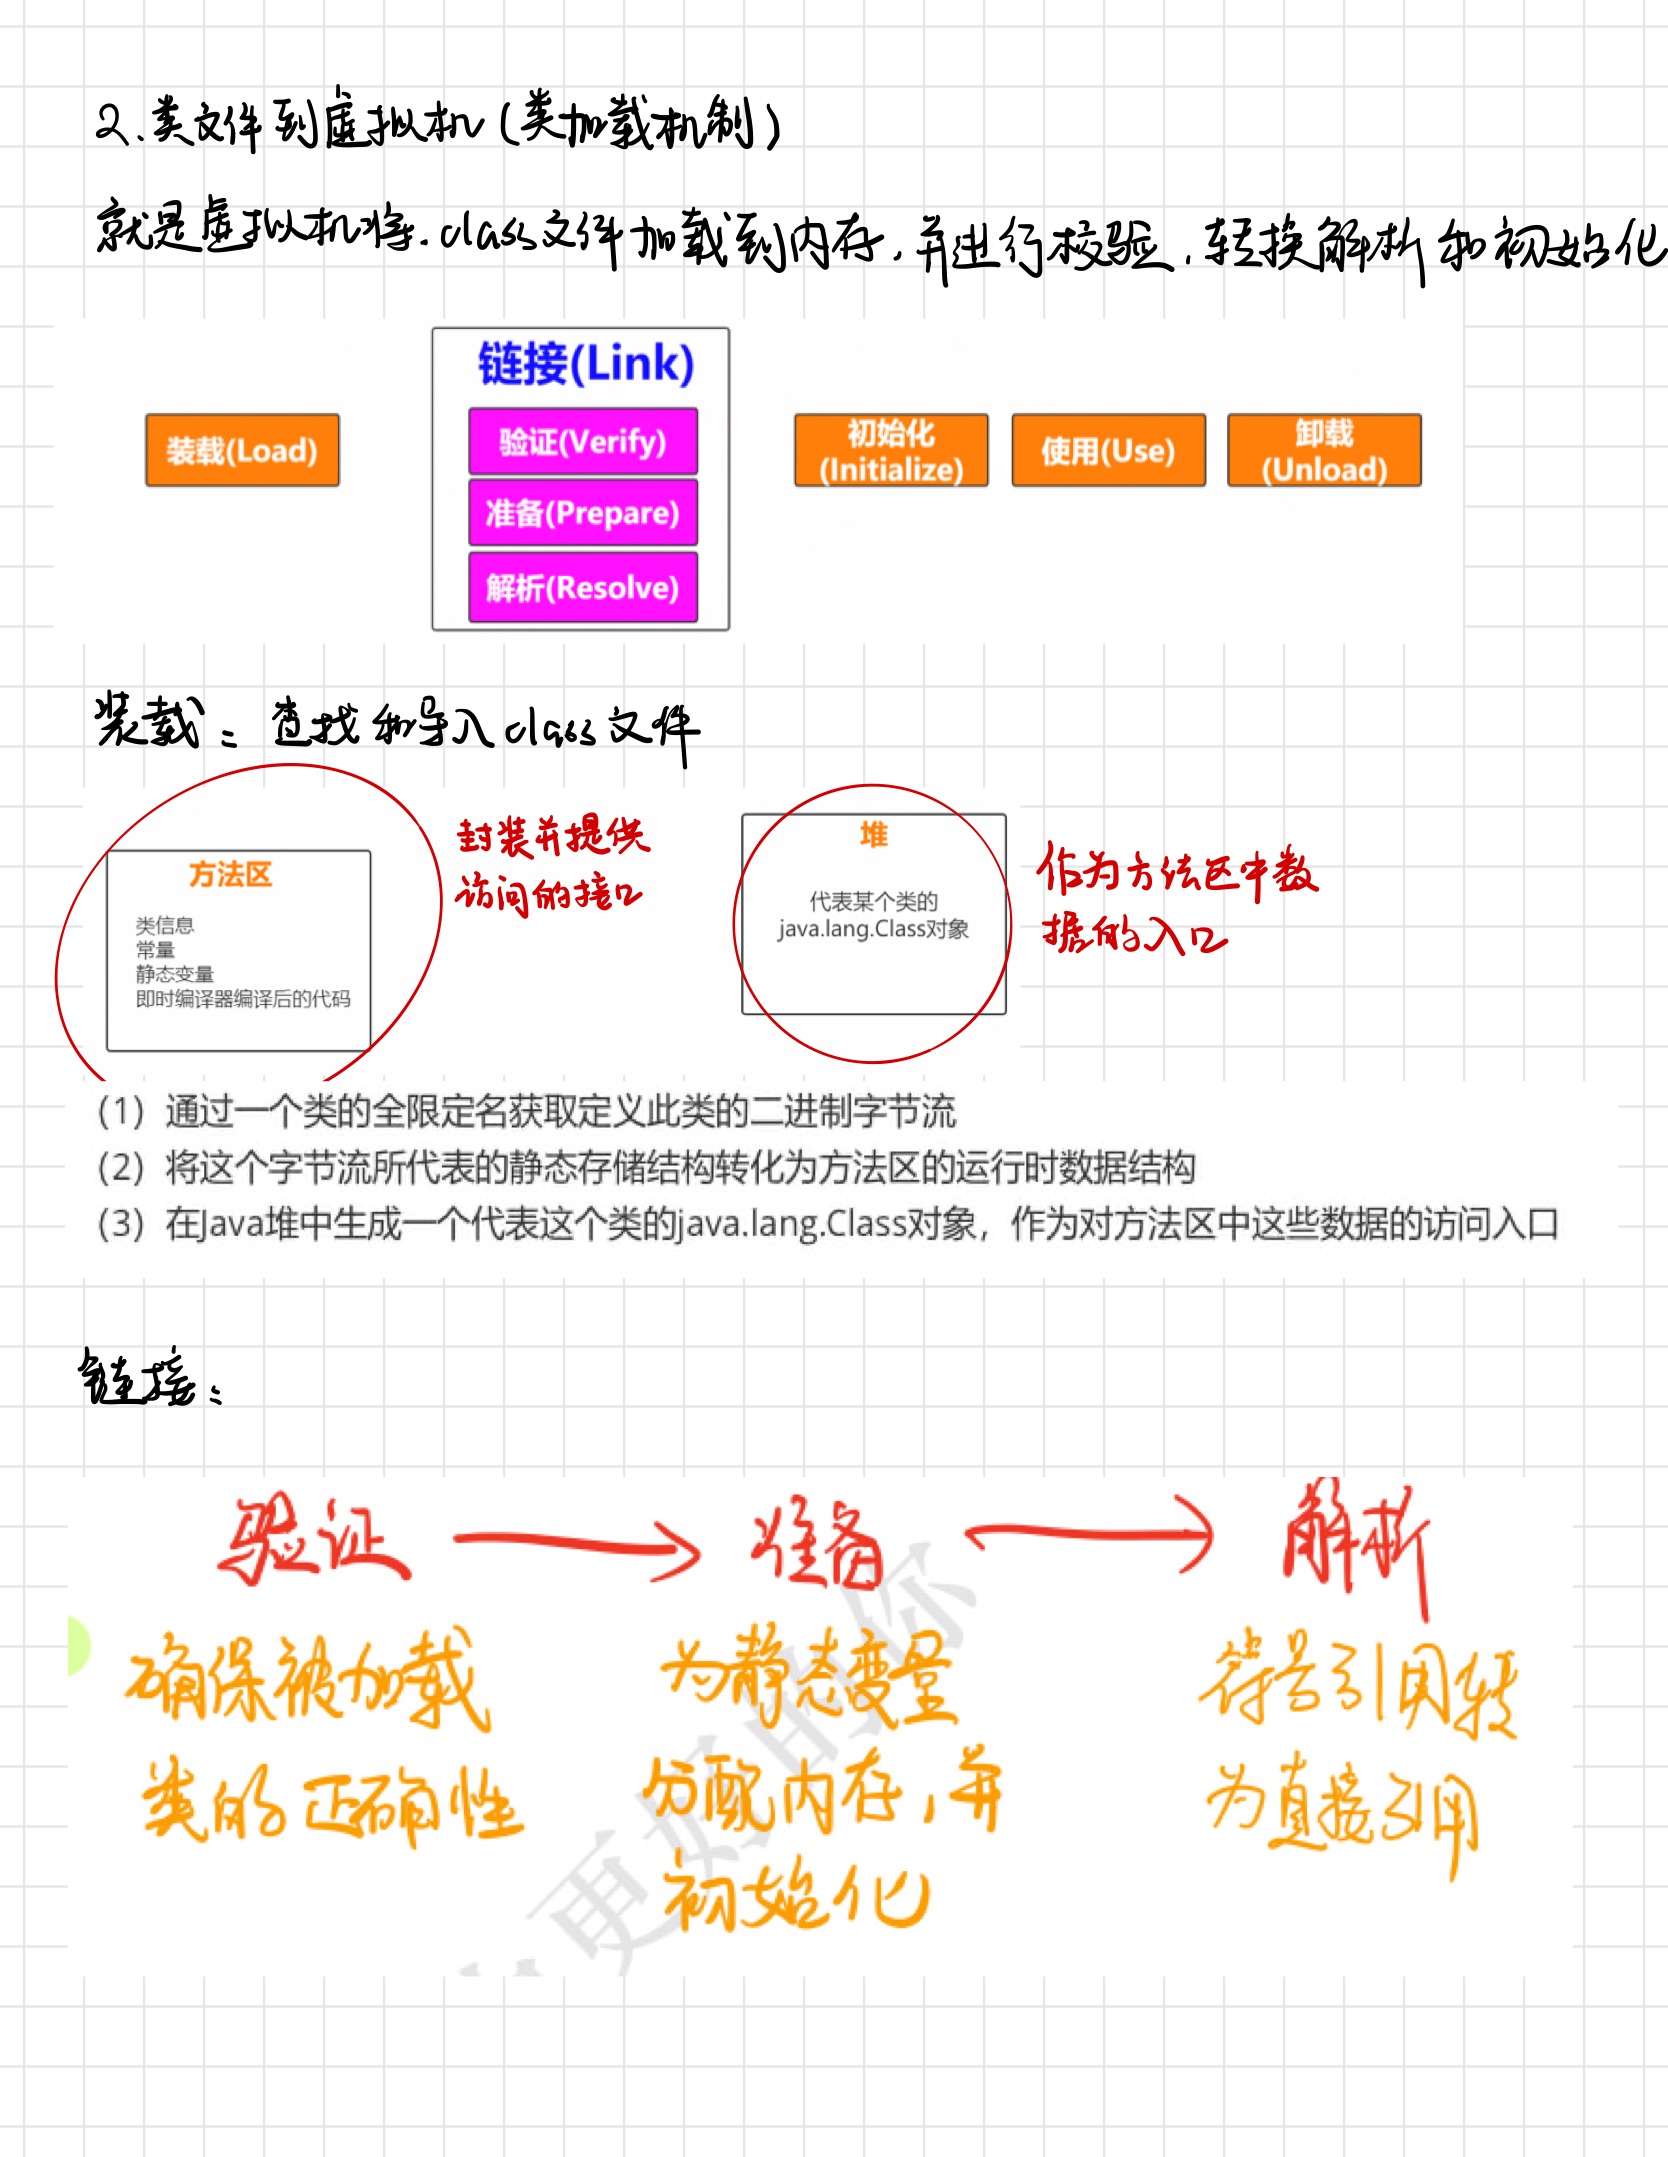 2.类文件到虚拟机(类加载机制)
就是虚拟机将.class文件加载到内存,并进行校验.转换解析和初始化
链接(Link)
装载(Load)
验证(Verify)
准备(Prepare)
解析(Resolve)
初始化
(Initialize)
使用(Use)
卸载
(Unload)
装载:查找和导入class文件
方法区
类信息
常量
静态变量
即时编译器编译后的代码
封装并提供
访问的接口
堆
代表某个类的
java.lang.Class对象
作为方法区中数
据的入口
（1）通过一个类的全限定名获取定义此类的二进制字节流
（2）将这个字节流所代表的静态存储结构转化为方法区的运行时数据结构
（3）在Java堆中生成一个代表这个类的java.lang.Class对象，作为对方法区中这些数据的访问入口
链接:
验证
准备
解析
确保被加载
类的正确性
为静态变量
分配内存,并
初始化
符号引用转
为直接引用
更好的你